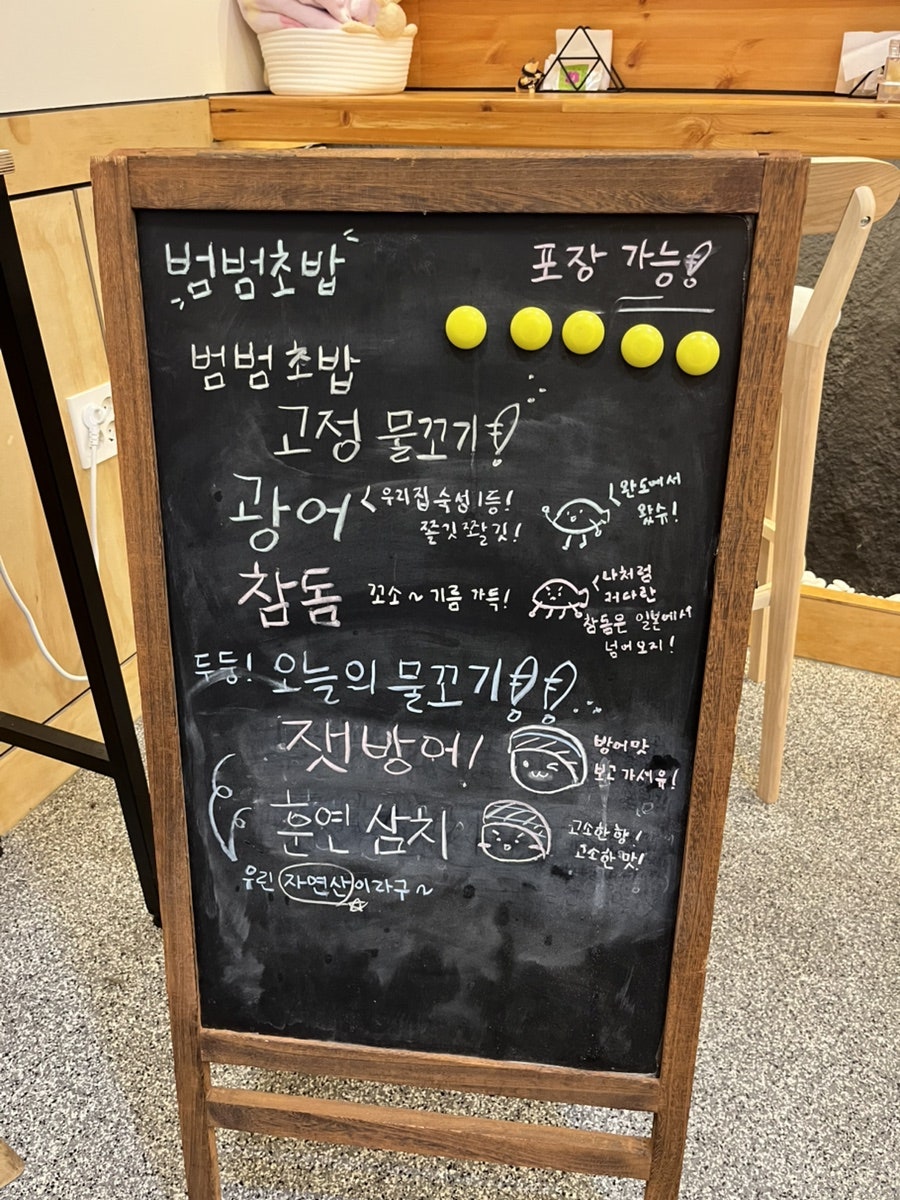 범범초밥
포장 가능!
범범초밥
고정 물꼬기!
광어
우리집 숙성 1등!
쫄깃쫄깃!
완도에서
왔슈!
참돔
꼬소~ 기름 가득!
나처럼
커다란
참돔은 일본에서
넘어오지!
두둥! 오늘의 물꼬기!!...
잿방어!
방어맛
보고가세유!
훈연 삼치
고소한향!
고소한맛!
우린 자연산이라구~